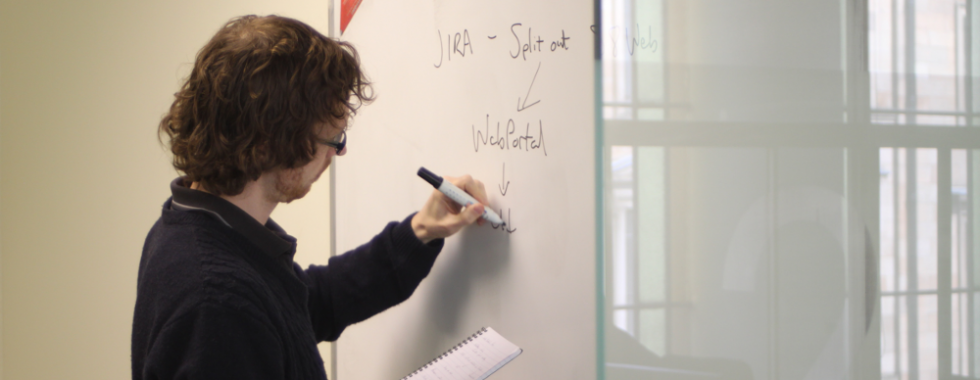 JIRA - Split out
Web
WebPortal